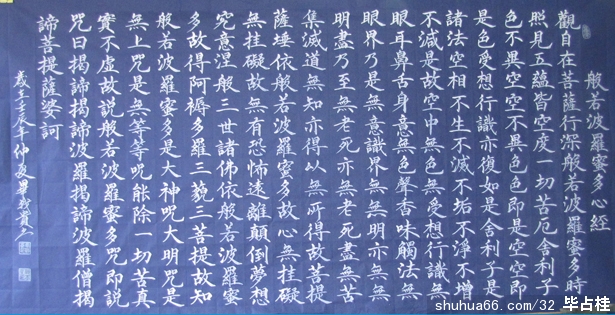 般若波羅蜜多心經
觀自在菩薩行深般若波羅蜜多時
照見五蘊皆空度一切苦厄舍利子
色不異空空不異色色即是空空即
是色受想行識亦復如是舍利子是
諸法空相不生不滅不垢不淨不增
不減是故空中無色無受想行識無
眼耳鼻舌身意無色聲香味觸法無
眼界乃是無意識界無無明亦無無
明盡乃至無老死亦無老死盡無苦
集滅道無知亦得以無所得故菩提
薩埵依般若波羅蜜多故心無挂礙
無挂礙故無有恐怖遠離顛倒夢想
究意涅般三世諸佛依般若波羅蜜
多故得阿褥多羅三藐三菩提故知
般若波羅蜜多是大神呪大明咒是
無上咒是無等等呪能除一切苦真
實不虛故説般若波羅蜜多咒即説
咒曰揭諦揭諦波羅揭諦波羅僧揭
諦菩提薩婆訶
壬辰年仲夏畢
shuhua66.com/32 毕占桂